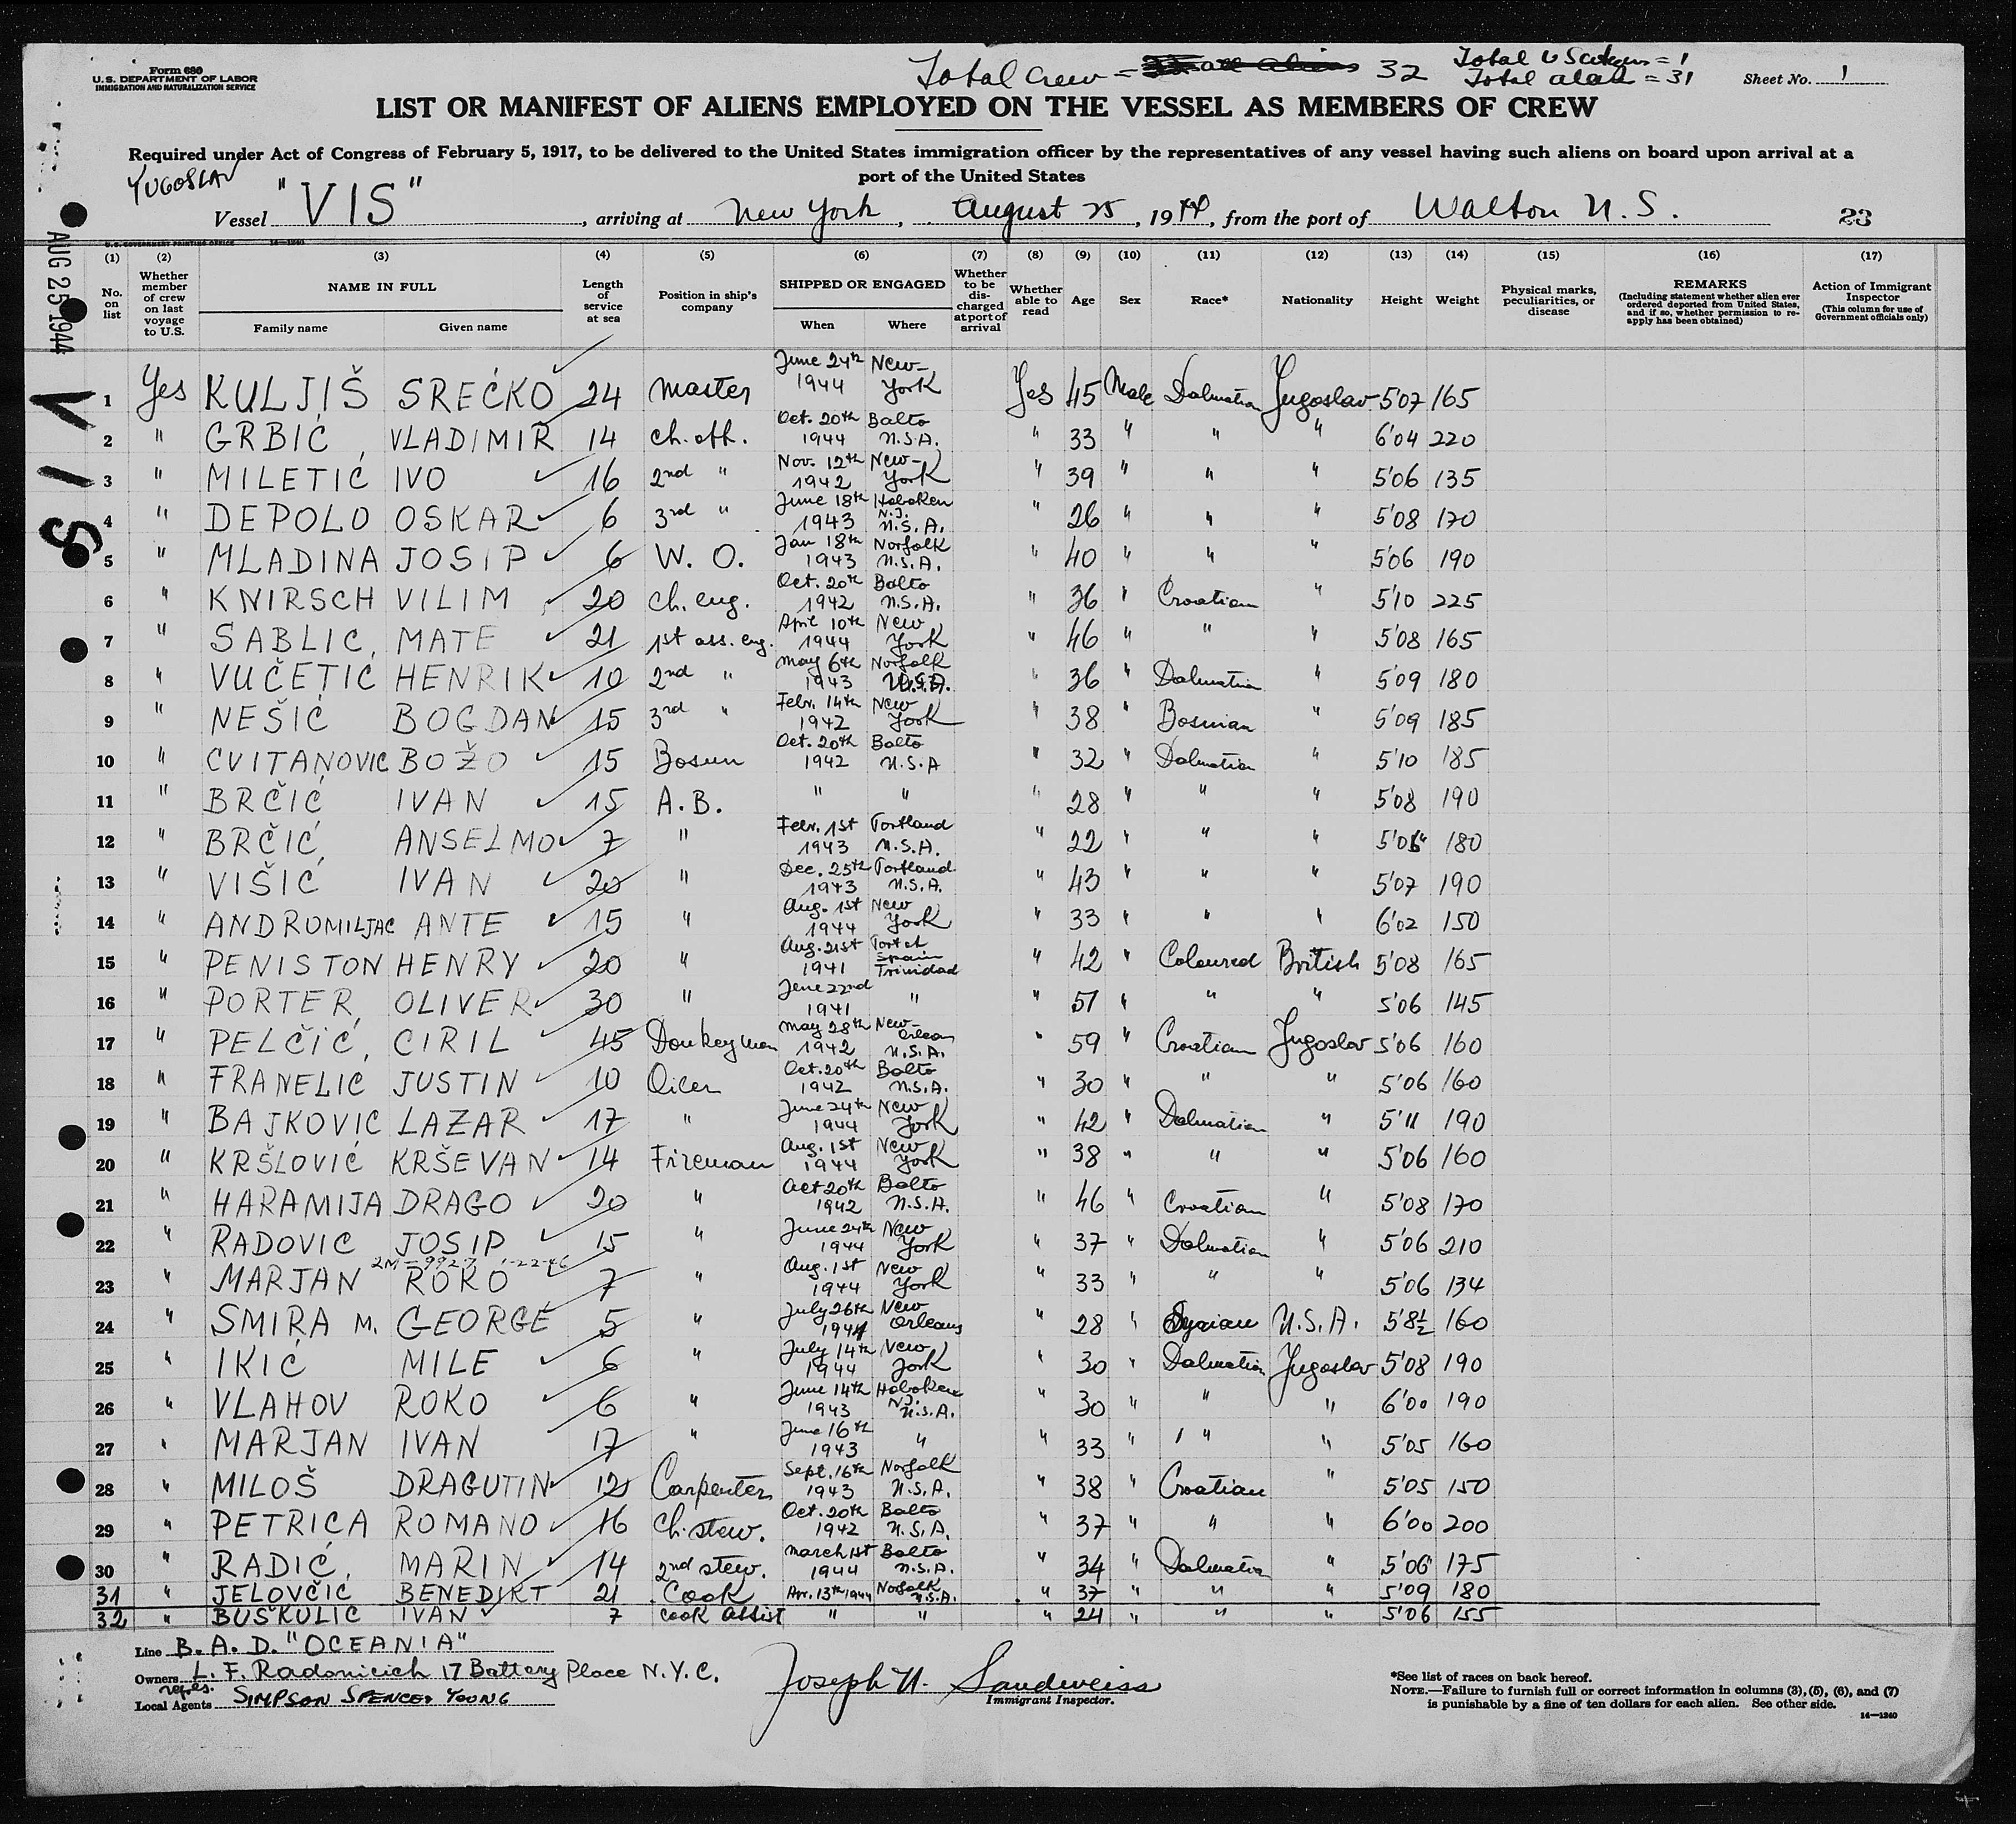 Form 680
U.S. DEPARTMENT OF LABOR
IMMIGRATION AND NATURALIZATION SERVICE
Total Crew = 32
Total U S = 1
Total = 31
Sheet No. 1
LIST OR MANIFEST OF ALIENS EMPLOYED ON THE VESSEL AS MEMBERS OF CREW
Required under Act of Congress of February 5, 1917, to be delivered to the United States immigration officer by the representatives of any vessel having such aliens on board upon arrival at a
port of the United States
YUGOSLAV
Vessel "VIS", arriving at New York, August 25, 1944, from the port of Walton N. S. 23
U.S. GOVERNMENT PRINTING OFFICE 14-1240
AUG 25 1944
VIS
(1) (2) (3) (4) (5) (6) (7) (8) (9) (10) (11) (12) (13) (14) (15) (16) (17)
No. on list
Whether member of crew on last voyage to U.S.
NAME IN FULL
Family name
Given name
Length of service at sea
Position in ship's company
SHIPPED OR ENGAGED
When
Where
Whether to be discharged at port of arrival
Whether able to read
Age
Sex
Race*
Nationality
Height
Weight
Physical marks, peculiarities, or disease
REMARKS
(Including statement whether alien ever ordered deported from United States, and if so, whether permission to re-apply has been obtained)
Action of Immigrant Inspector
(This column for use of Government officials only)
1 Yes KULJIŠ SREĆKO 24 Master June 24th 1944 New-York Yes 45 Male Dalmatian Jugoslav 5'07 165
2 " GRBIĆ, VLADIMIR 14 Ch. off. Oct. 20th 1944 Balto U.S.A. " 33 " " " 6'04 220
3 " MILETIĆ IVO 16 2nd " Nov. 12th 1942 New-York " 39 " " " 5'06 135
4 " DEPOLO OSKAR 6 3rd " June 18th 1943 Hoboken N.J. U.S.A. " 26 " " " 5'08 170
5 " MLADINA JOSIP 6 W. O. Jan 18th 1943 Norfolk U.S.A. " 40 " " " 5'06 190
6 " KNIRSCH VILIM 20 Ch. eng. Oct. 20th 1942 Balto U.S.A. " 36 " Croatian " 5'10 225
7 " SABLIC, MATE 21 1st ass. eng. April 10th 1944 New York " 46 " " " 5'08 165
8 " VUČETIĆ HENRIK 10 2nd " May 6th 1943 Norfolk U.S.A. " 36 " Dalmatian " 5'09 180
9 " NEŠIĆ BOGDAN 15 3rd " Febr. 14th 1942 New York " 38 " Bosnian " 5'09 185
10 " CVITANOVIC BOŽO 15 Bosun Oct. 20th 1942 Balto U.S.A " 32 " Dalmatian " 5'10 185
11 " BRČIĆ IVAN 15 A.B. " " " 28 " " " 5'08 190
12 " BRČIĆ, ANSELMO 7 " Febr. 1st 1943 Portland U.S.A. " 22 " " " 180
13 " VIŠIĆ IVAN 20 " Dec. 25th 1943 Portland U.S.A. " 43 " " " 5'07 190
14 " ANDROMILJAC ANTE 15 " Aug. 1st 1944 New York " 33 " " " 6'02 150
15 " PENISTON HENRY 20 " Aug. 21st 1941 Port of Spain Trinidad " 42 " Coloured British 5'08 165
16 " PORTER, OLIVER 30 " June 22nd 1941 " " 51 " " " 5'06 145
17 " PELČIĆ, CIRIL 45 Donkeyman May 28th 1942 New-Orleans U.S.A. " 59 " Croatian Jugoslav 5'06 160
18 " FRANELIĆ JUSTIN 10 Oiler Oct. 20th 1942 Balto U.S.A. " 30 " " " 5'06 160
19 " BAJKOVIC LAZAR 17 " June 24th 1944 New York " 42 " Dalmatian " 5'11 190
20 " KRŠLOVIĆ KRŠEVAN 14 Fireman Aug. 1st 1944 New York " 38 " " " 5'06 160
21 " HARAMIJA DRAGO 20 " Oct 20th 1942 Balto U.S.A. " 46 " Croatian " 5'08 170
22 " RADOVIC JOSIP 15 " June 24th 1944 New York " 37 " Dalmatian " 5'06 210
23 " MARJAN ROKO 7 " Aug. 1st 1944 New York " 33 " " " 5'06 134
24 " SMIRA M. GEORGE 5 " July 26th 1944 New Orleans " 28 " Syrian U.S.A. 5'8½ 160
25 " IKIĆ MILE 6 " July 14th 1944 New York " 30 " Dalmatian Jugoslav 5'08 190
26 " VLAHOV ROKO 6 " June 14th 1943 Hoboken N.J. U.S.A. " 30 " " " 6'00 190
27 " MARJAN IVAN 17 " June 16th 1943 " " 33 " " " 5'05 160
28 " MILOŠ DRAGUTIN 12 Carpenter Sept. 16th 1943 Norfolk U.S.A. " 38 " Croatian " 5'05 150
29 " PETRICA ROMANO 16 Ch. stew. Oct. 20th 1942 Balto U.S.A. " 37 " " " 6'00 200
30 " RADIĆ, MARIN 14 2nd stew. March 1st 1944 Balto U.S.A. " 34 " Dalmatian " 5'06 175
31 " JELOVČIĆ BENEDIKT 21 Cook Apr. 13th 1944 Norfolk U.S.A. " 37 " " " 5'09 180
32 " BUŠKULIC IVAN 7 cook assist " " " 24 " " " 5'06 155
Line B. A. D. "OCEANIA"
Owners repres. L. F. Radonicich 17 Battery Place N.Y.C.
Local Agents SIMPSON SPENCER YOUNG
Joseph N. Sandweiss
Immigrant Inspector.
*See list of races on back hereof.
NOTE.—Failure to furnish full or correct information in columns (3), (5), (6), and (7)
is punishable by a fine of ten dollars for each alien. See other side.
14—1240